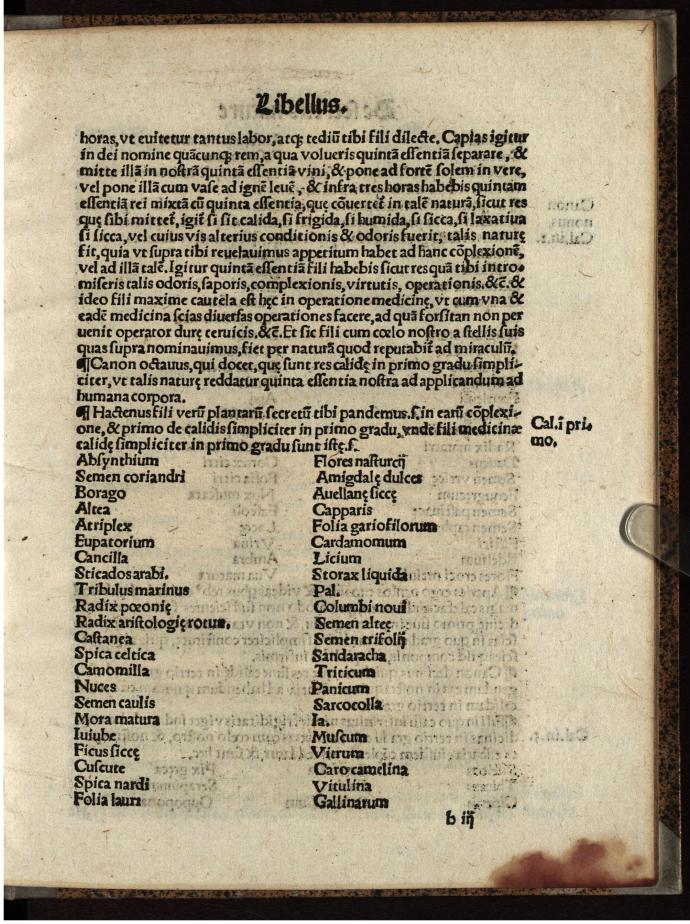 Libellus.
horas, vt euitetur tantus labor, atq; tediũ tibi fili dilecte. Capias igitur
in dei nomine quãcunq; rem, a qua volueris quintã essentiã separare, &
mitte illã in nostrã quintã essentiã vini, & pone ad fortẽ solem in vere,
vel pone illã cum vase ad ignẽ leuẽ, & infra tres horas habebis quintam
essentiã rei mixtã cũ quinta essentia, quę cõuertet̃ in talẽ naturã, sicut res
quę sibi mittet̃, igit̃ si sit calida, si frigida, si humida, si sicca, si laxatiua
si sicca, vel cuius vis alterius conditionis & odoris fuerit, talis naturę
fit, quia vt supra tibi reuelauimus appetitum habet ad hanc cõplexionẽ,
vel ad illã talẽ. Igitur quintã essentiã fili habebis sicut res quã tibi intro-
miseris talis odoris, saporis, complexionis, virtutis, operationis. &c̃. &
ideo fili maxime cautela est hęc in operatione medicinę, vt cum vna &
eadẽ medicina scias diuersas operationes facere, ad quã forsitan non per
uenit operator durę ceruicis, &c̃. Et sic fili cum cœlo nostro a stellis suis
quas supra nominauimus, fiet per naturã quod reputabit̃ ad miraculũ.
¶ Canon octauus, qui docet, quę sunt res calidę in primo gradu simpli-
citer, vt talis naturę reddatur quinta essentia nostra ad applicandum ad
humana corpora.
¶ Hactenus fili verũ plantarũ secretũ tibi pandemus. s. in earũ cõplexi-
one, & primo de calidis simpliciter in primo gradu, vnde fili medicinæ
calidę simpliciter in primo gradu sunt istę. s.
Cal. ĩ pri-
mo.
Absynthium
Semen coriandri
Borago
Altea
Atriplex
Eupatorium
Cancilla
Sticados arabi.
Tribulus marinus
Radix pœonię
Radix aristologię rotun.
Castanea
Spica celtica
Camomilla
Nuces
Semen caulis
Mora matura
Iuiube
Ficus siccę
Cuscute
Spica nardi
Folia lauri
Flores nasturcij
Amigdalę dulces
Auellanę siccę
Capparis
Folia gariofilorum
Cardamomum
Licium
Storax liquida
Pal.
Columbi noui
Semen alteę
Semen trifolij
Sandaracha
Triticum
Panicum
Sarcocolla
Ia.
Muscum
Vitrum
Caro camelina
Vitulina
Gallinarum
b iij